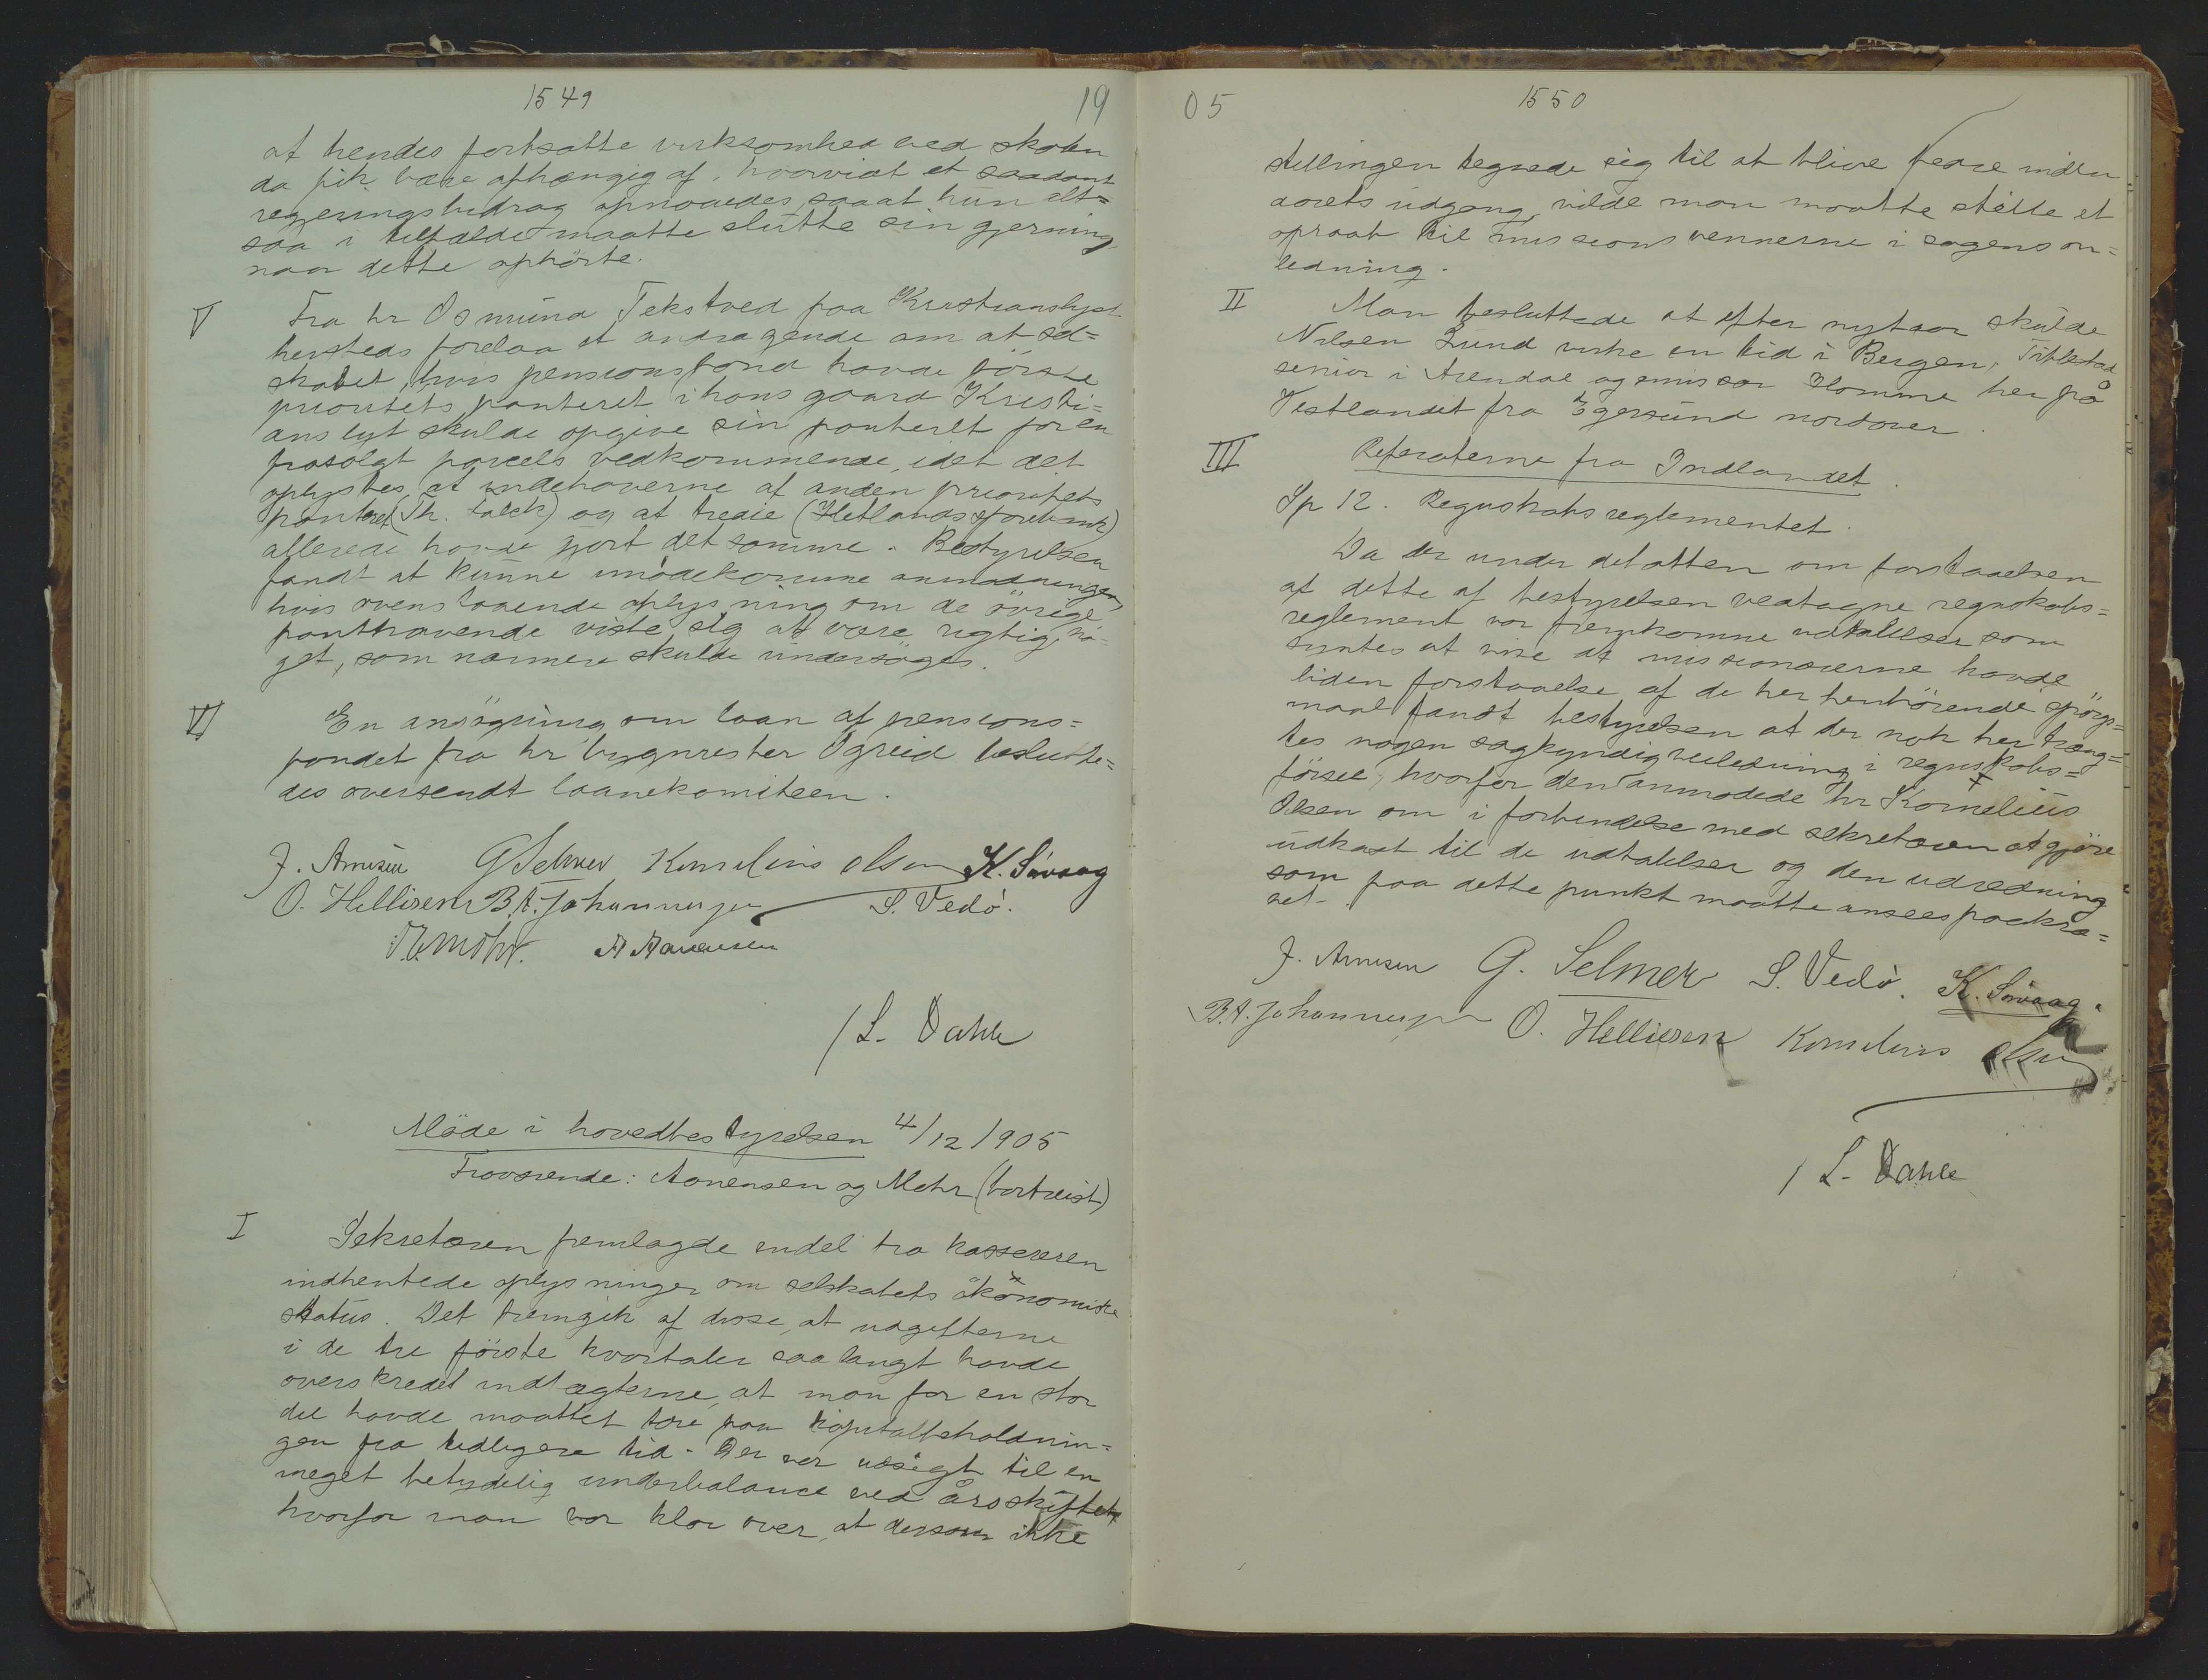 1549
19
at hendes fortsatte virksomhed ved skolen
da fik være afhængig af, hvorvidt et saadant
regjeringsbidrag opnaaedes, saa at hun alt=
saa i tilfælde maatte slutte sin gjerning,
naar dette ophörte.
V Fra hr Osmund Tekstved paa Kristianslyst
hersteds forelaa et andragende om at sel=
skabet, hvis pensionsfond havde förste
prioritets panteret i hans gaard Kristi=
anslyt skulde opgive sin panteret for en
frasolgt parcels vedkommende, idet det
oplystes, at indehaverne af anden prioritets
panteret (Th. Falck) og at tredie (Hetlands sparebank)
allerede havde gjort det samme. Bestyrelsen
fandt at kunne imödekomme anmodningen,
hvis ovenstaaende oplysning om de övrige
panthavende viste sig at være rigtig, no=
get, som nærmere skulde undersöges.
VI En ansögning om laan af pensions=
fondet fra hr bygmester Ogreid beslutte=
des oversendt laanekomiteen.
J. Arnesen G Selmer Kornelius Olsen K. Sövaag
O. Hellisen B.A. Johannesen S. Vedö.
Mohr. A Aanensen
/ L. Dahle
Möde i hovedbestyrelsen 4/12 1905
Fraværende: Aanensen og Mohr (bortreist)
I Sekretæren fremlagde endel fra kassereren
indhentede oplysninger om selskabets ökonomiske
status. Det fremgik af disse, at udgifterne
i de tre förste kvartaler saa langt havde
overskredet indtægterne, at man for en stor
del havde maattet tære paa kapitalbeholdnin=
gen fra tidligere tid. Der var udsigt til en
meget betydelig underbalance ved årsskiftet
hvorfor man var klar over, at dersom ikke
05
1550
stillingen tegnede sig til at blive bedre inden
aarets udgang, vilde man maatte stille et
opraab til missionsvennerne i sagens an=
ledning.
II Man besluttede at efter nytaar skulde
Nilsen Lund virke en tid i Bergen, Tiltlestad
senior i Arendal og emissær Homme her på
Vestlandet fra Egersund nordover.
III Referaterne fra Indlandet.
Sp 12. Regnskabsreglementet.
Da der under debatten om forstaaelsen
af dette af bestyrelsen vedtagne regnskabs=
reglement var fremkomne udtalelser som
syntes at vise at missionærerne havde
liden forstaaelse af de her henhörende spörgs=
maal fandt bestyrelsen at der nok her træng=
tes nogen sagkyndig veiledning i regnskabs=
försel, hvorfor den anmodede hr Kornelius
Olsen om i forbindelse med sekretæren at gjöre
udkast til de udtalelser og den udredning
som paa dette punkt maatte ansees paakræ=
vet.
J. Arnesen G. Selmer S. Vedö. K. Sövaag.
B.A. Johannesen O. Hellisen Kornelius Olsen
/ L. Dahle